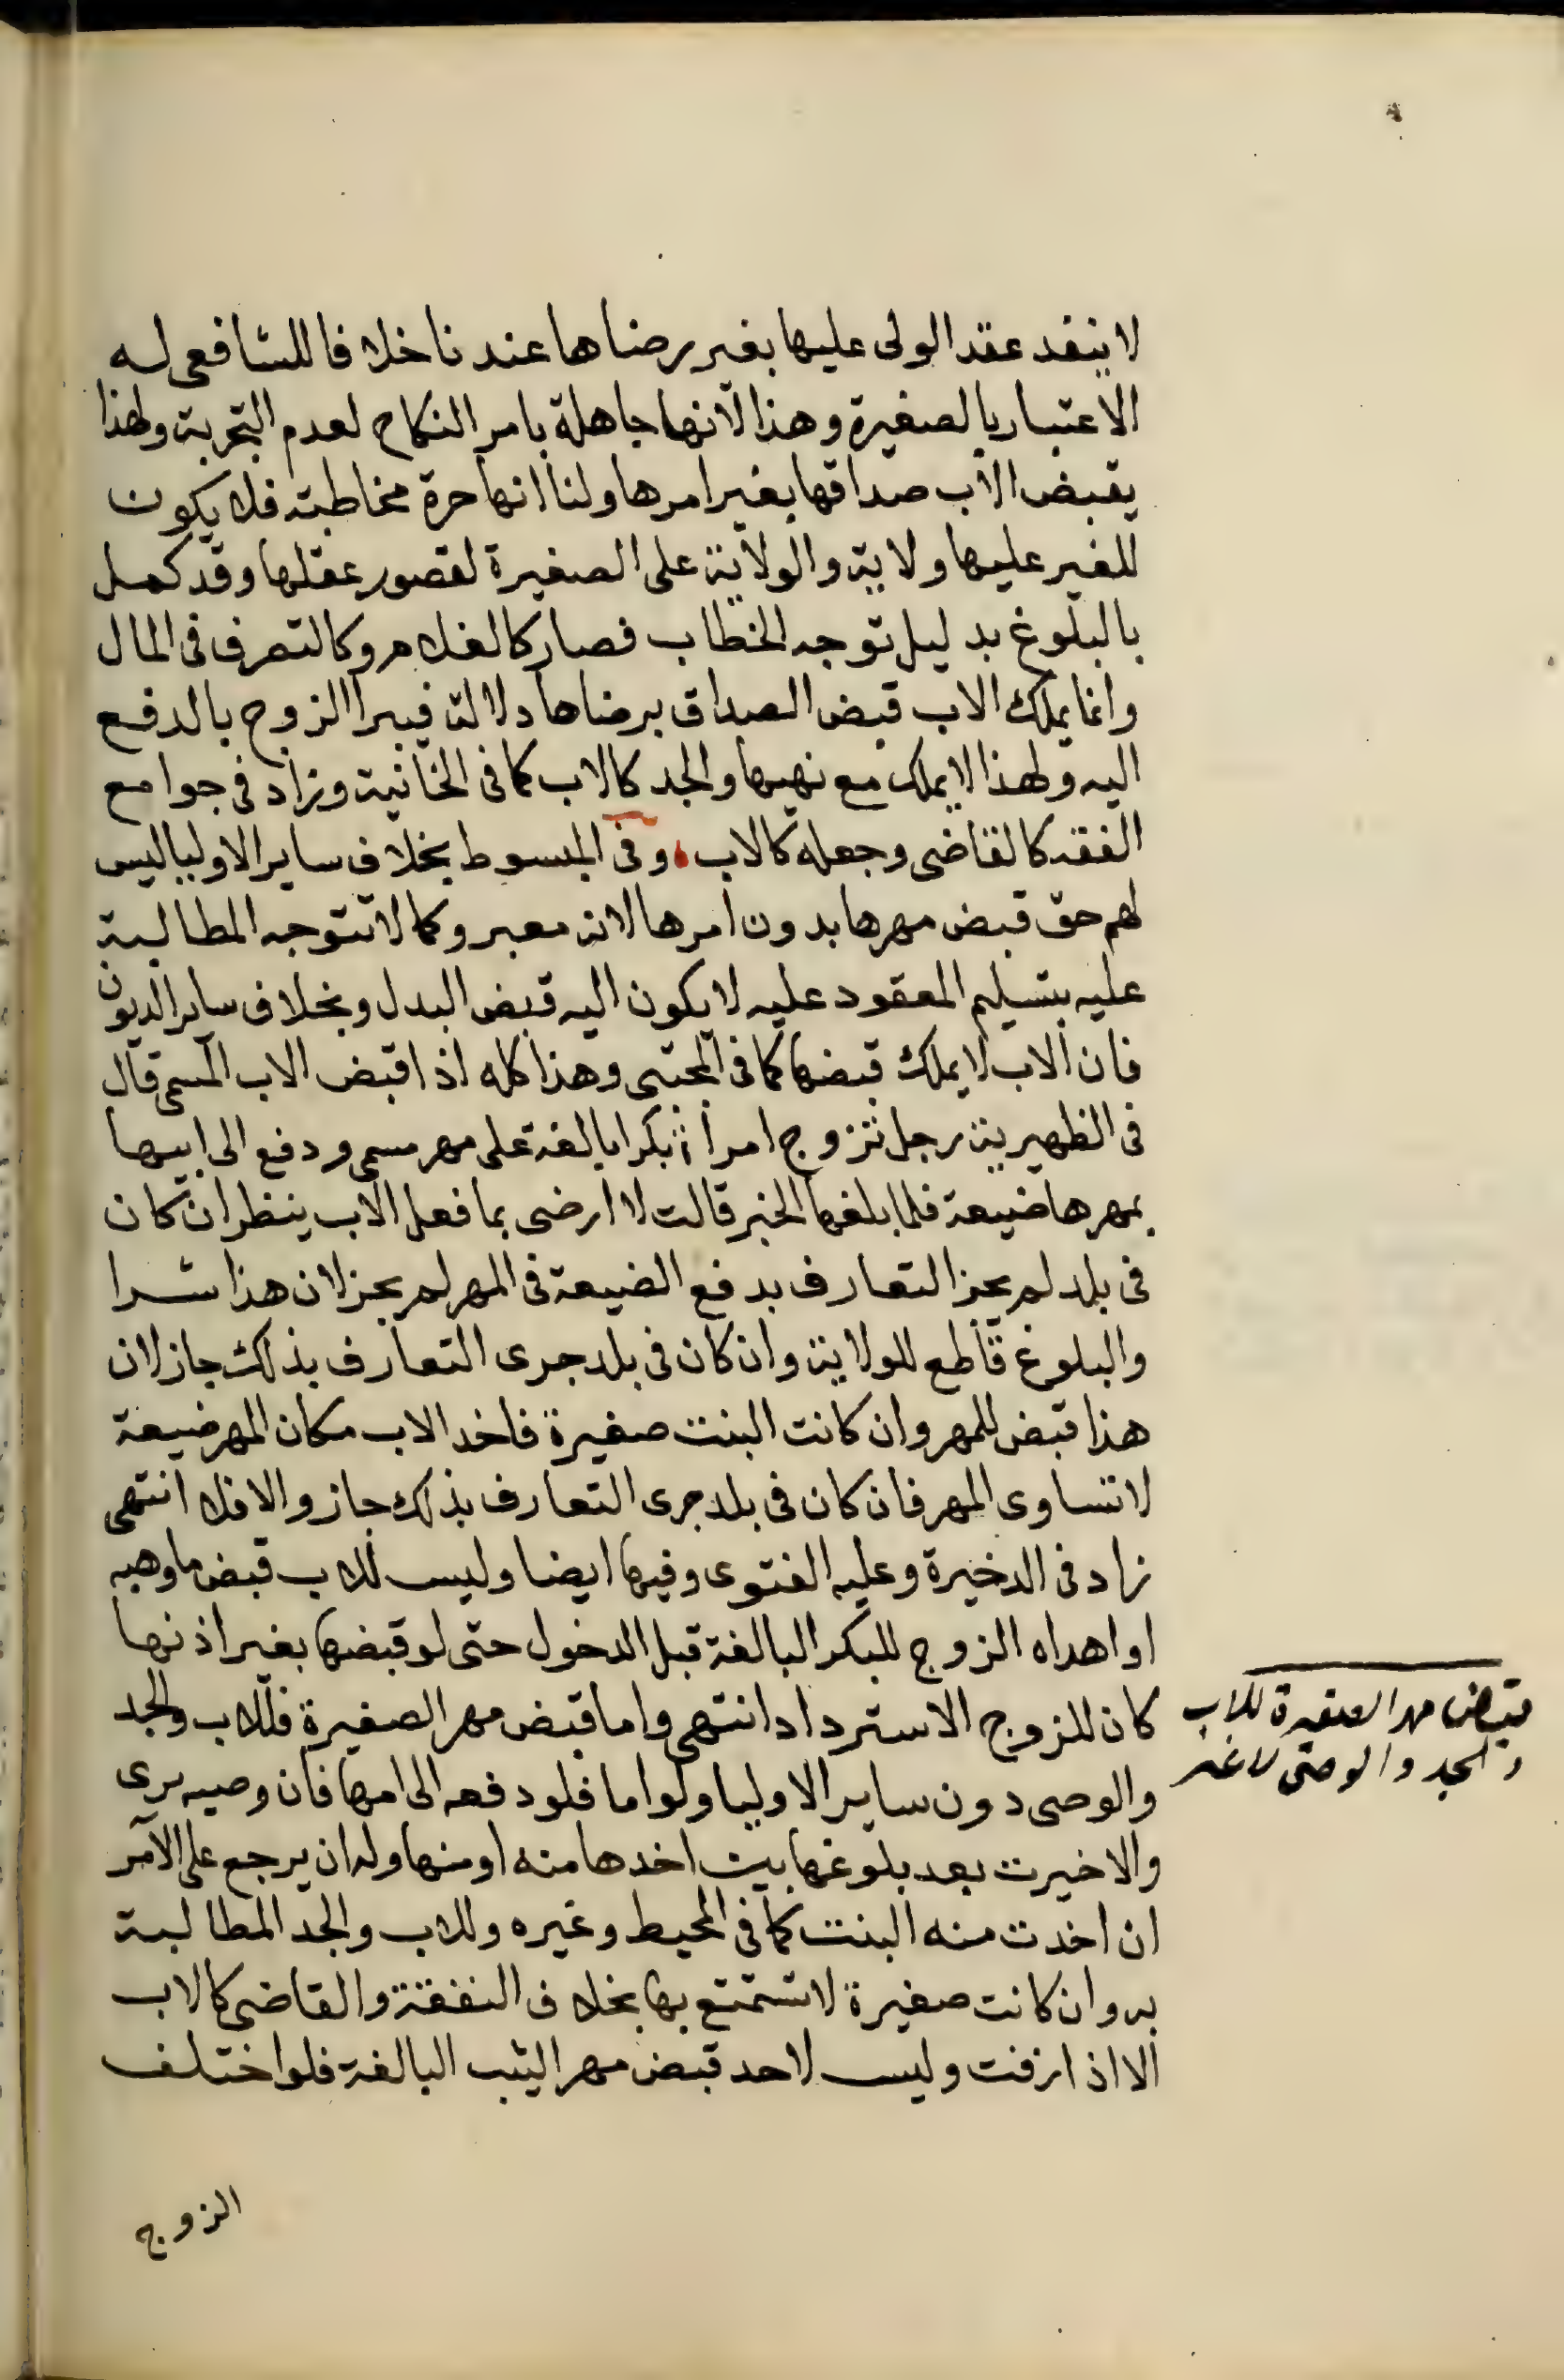 لا ينفد عقد الولى عليها بغير رضاها عندنا خلافا للشافعى له
الاعتبار بالصغيرة وهذا لانها جاهلة بامر النكاح لعدم التجربة ولهذا
يقبض الاب صداقها بغير امرها ولنا انها حرة مخاطبة فلا يكون
للغير عليها ولاية والولاية على الصغيرة لقصور عقلها وقد كمل
بالبلوغ بدليل توجه الخطاب فصار كالغلام وكالتصرف فى المال
وانما يملك الاب قبض الصداق برضاها دلالة فيبرا الزوج بالدفع
اليه ولهذا لا يملك مع نهيها والجد كالاب كما فى الخانية وزاد فى جوامع
الفقه كالقاضى وجعله كالاب، وفى المبسوط بخلاف ساير الاوليا ليس
لهم حق قبض مهرها بدون امرها لانه معبر وكما لا تتوجه المطالبة
عليه بتسليم المعقود عليه لا يكون اليه قبض البدل وبخلاف ساير الديون
فان الاب لا يملك قبضها كما فى المجتبى وهذا كله اذا قبض الاب المسمى قال
فى الظهيرية رجل تزوج امراة بكرا بالغة على مهر مسمى ودفع الى ابيها
بمهرها ضيعة فلما بلغها الخبر قالت لا ارضى بما فعل الاب ينظر ان كان
فى بلد لم يجز التعارف بدفع الضيعة فى المهر لم يجز لان هذا شرا
والبلوغ قاطع للولاية وان كان فى بلد جرى التعارف بذلك جاز لان
هذا قبض للمهر وان كانت البنت صغيرة فاخد الاب مكان المهر ضيعة
لا تساوى المهر فان كان فى بلد جرى التعارف بذلك جاز والا فلا انتهى
زاد فى الدخيرة وعليه الفتوى وفيها ايضا وليس للاب قبض ما وهبه
او اهداه الزوج للبكر البالغة قبل الدخول حتى لو قبضها بغير اذنها
كان للزوج الاسترداد انتهى واما قبض مهر الصغيرة فللاب والجد
والوصى دون ساير الاوليا ولو اما فلو دفعه الى امها فان وصيه برى
والا خيرت بعد بلوغها بين اخدها منه او منها وله ان يرجع على الآمر
ان اخدت منه البنت كما فى المحيط وغيره وللاب والجد المطالبة
به وان كانت صغيرة لا تستمتع بها بخلاف النفقة والقاضى كالاب
الا اذا زفت وليس لاحد قبض مهر الثيب البالغة فلو اختلف
الزوج
قبض مهر الصغيرة للاب
والجد والوصى لا غير